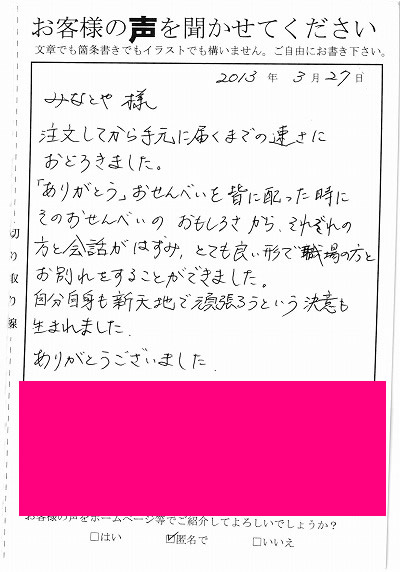 お客様の声を聞かせてください
文章でも箇条書きでもイラストでも構いません。ご自由にお書き下さい。
2013 年 3 月 27 日
みなとや 様
注文してから手元に届くまでの速さに
おどろきました。
「ありがとう」おせんべいを皆に配った時に
そのおせんべいの おもしろさ から、それぞれの
方と会話が はずみ、とても良い形で職場の方と
お別れをすることができました。
自分自身も新天地で頑張ろうという決意も
生まれました.
ありがとうございました.
切り取り線
お客様の声をホームページ等でご紹介してよろしいでしょうか？
□はい ☑匿名で □いいえ